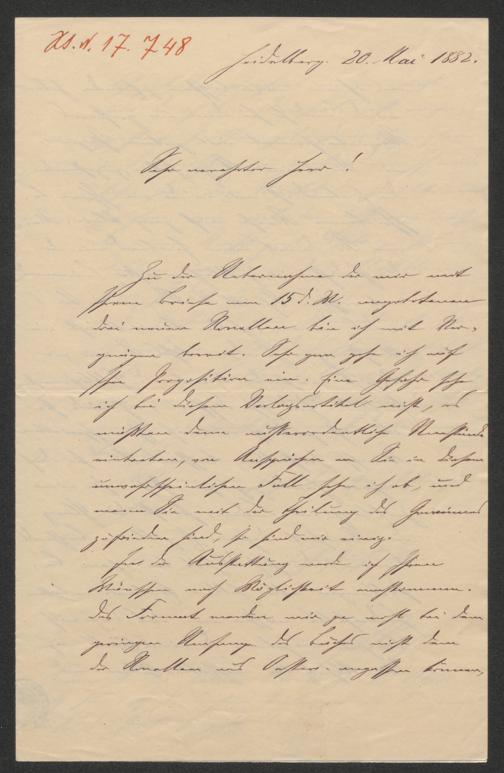 Hs. N. 17.748
Heidelberg. 20. Mai 1882.
Sehr verehrter Herr!
Zu der Uebernahme der mir mit
Ihrem Briefe vom 15 d. M. angebotenen
drei neuen Novellen bin ich mit Ver-
gnügen bereit. Sehr gern gehe ich auf
Ihre Proposition ein. Eine Gefahr sehe
ich bei diesem Verlagsartikel nicht, es
müßten denn außerordentliche Umstände
eintreten, von Ansprüchen an Sie in diesem
unwahrscheinlichen Fall sehe ich ab, und
wenn Sie mit der Theilung des Gewinnes
zufrieden sind, so sind wir einig.
In der Ausstattung werde ich Ihren
Wünschen nach Möglichkeit nachkommen.
Das Format werden wir ja wohl bei dem
geringen Umfange des Buches nicht dem
der Novellen aus Oester. anpassen können,